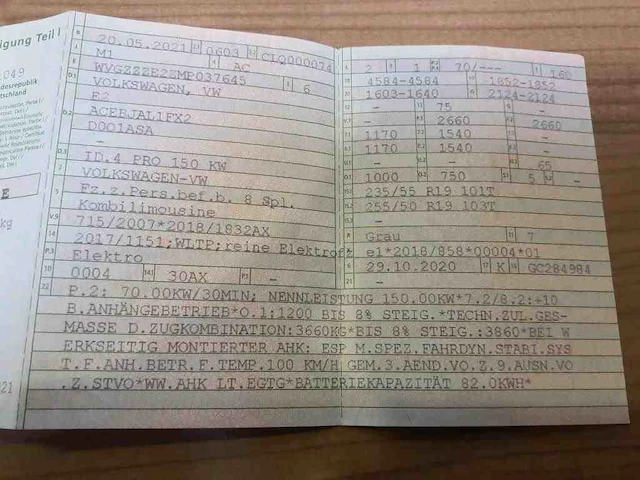 igung Teil I
049
desrepublik
tschland
E
kg
021
20.05.2021 0603 CLQ000074
M1 AC
WVGZZZE2ZMP037645 6
VOLKSWAGEN, VW
E2
ACEBJAL1FX2
D001ASA
-
ID.4 PRO 150 KW
VOLKSWAGEN-VW
Fz.z.Pers.bef.b. 8 Spl.
Kombilimousine
715/2007*2018/1832AX
2017/1151;WLTP;reine Elektrof
Elektro
0004 30AX -
2 1 70/--- 160
4584-4584 1852-1852
1603-1640 2124-2124
- 75 -
- 2660 2660
1170 1540 -
1170 1540 -
- - 65
1000 750 5 -
235/55 R19 101T
255/50 R19 103T
-
Grau 7
e1*2018/858*00004*01
29.10.2020 K GC284984
P.2: 70.00KW/30MIN; NENNLEISTUNG 150.00KW*7.2/8.2:+10
B.ANHÄNGEBETRIEB*O.1:1200 BIS 8% STEIG.*TECHN.ZUL.GES-
MASSE D.ZUGKOMBINATION:3660KG*BIS 8% STEIG.:3860*BEI W
ERKSEITIG MONTIERTER AHK: ESP M.SPEZ.FAHRDYN.STABI.SYS
T.F.ANH.BETR.F.TEMP.100 KM/H GEM.3.AEND.VO.Z.9.AUSN.VO
.Z.STVO*WW.AHK LT.EGTG*BATTERIEKAPAZITÄT 82.0KWH*